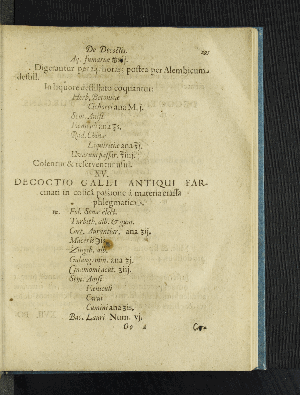 De Decoctis.
Aq. fumariæ
Digerantur per horas postea per Alembicum
destill.
In liquore destillato coquantur:
Herb. Betonicæ
ana M. j.
Sem. Anisi
Fœniculi ana ʒs.
Rad. Chinæ
Liquiritiæ ana ʒs.
Uvarum passar. ʒiij.
Colentur & reserventur usui.
XV.
DECOCTIO GALLI ANTIQUI FAR-
cinati in colica passione à materia crassa
phlegmatica.
℞. Fol. Senæ elect.
Turbith, alb. & gum.
Cort. Aurantior. ana ʒij.
Maceris ʒis.
Zingib. alb.
Galang. min. ana ʒj.
Cinamomi acut. ʒiij.
Sem. Anisi
Fœniculi
Carui
Cumini ana ʒis.
Bac. Lauri Num. vj.
Gg 2